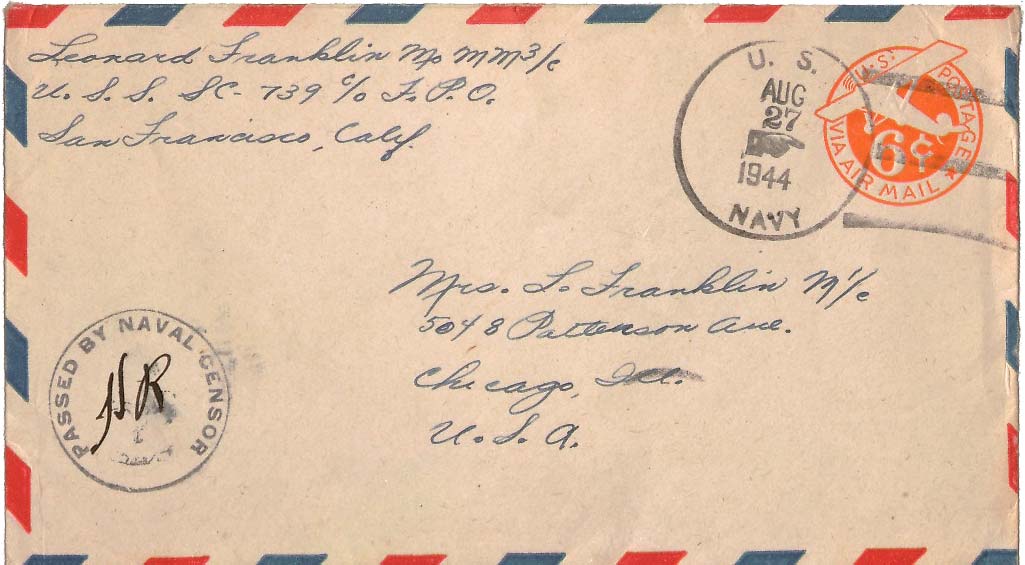 Leonard Franklin Mo MM3/c
U. S. S. SC-739 c/o F. P. O.
San Francisco, Calif.
U. S.
AUG
27
1944
NAVY
U.S. POSTAGE
6¢
VIA AIR MAIL
Mrs. L. Franklin
5048 Patterson Ave.
Chicago, Ill.
U. S. A.
PASSED BY NAVAL CENSOR